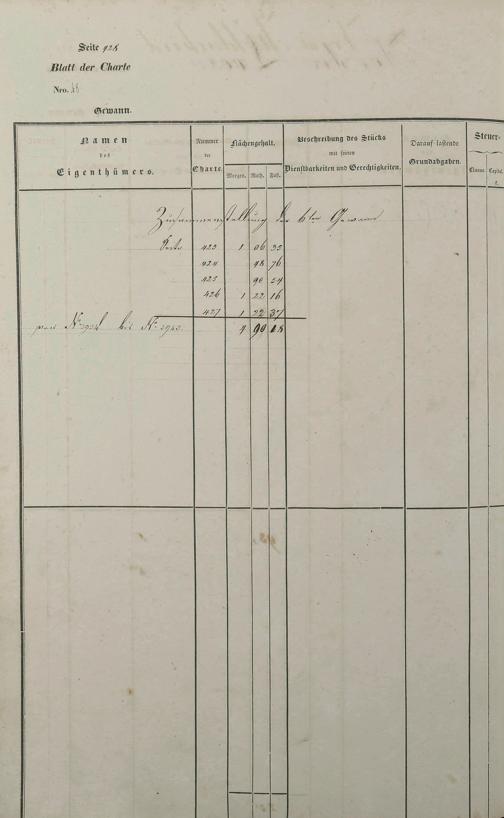 Seite 428
Blatt der Charte
Nro.
Gewann.
Namen
des
Eigenthümers.
Nummer
der
Charte.
Flächengehalt.
Morgen. Ruth. Fuß.
Beschreibung des Stücks
mit seinen
Dienstbarkeiten und Gerechtigkeiten.
Darauf lastende
Grundabgaben.
Steuer-
Classe. Capital.
Zusammenstellung der 6ten Gewann
Seite 423 1 06 35
424 98 76
425 90 54
426 1 22 16
427 1 22 37
von No bis No